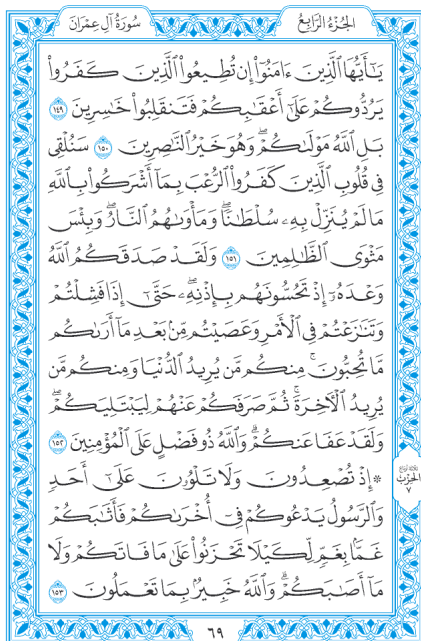 سُورَةُ آلِ عِمْرَانَ
الجُزْءُ الرَّابِعُ
يَٰٓأَيُّهَا ٱلَّذِينَ ءَامَنُوٓاْ إِن تُطِيعُواْ ٱلَّذِينَ كَفَرُواْ
يَرُدُّوكُمْ عَلَىٰٓ أَعْقَٰبِكُمْ فَتَنقَلِبُواْ خَٰسِرِينَ ١٤٩
بَلِ ٱللَّهُ مَوْلَىٰكُمْۖ وَهُوَ خَيْرُ ٱلنَّٰصِرِينَ ١٥٠ سَنُلْقِى
فِى قُلُوبِ ٱلَّذِينَ كَفَرُواْ ٱلرُّعْبَ بِمَآ أَشْرَكُواْ بِٱللَّهِ
مَا لَمْ يُنَزِّلْ بِهِۦ سُلْطَٰنًاۖ وَمَأْوَىٰهُمُ ٱلنَّارُۖ وَبِئْسَ
مَثْوَى ٱلظَّٰلِمِينَ ١٥١ وَلَقَدْ صَدَقَكُمُ ٱللَّهُ
وَعْدَهُۥٓ إِذْ تَحُسُّونَهُم بِإِذْنِهِۦۖ حَتَّىٰٓ إِذَا فَشِلْتُمْ
وَتَنَٰزَعْتُمْ فِى ٱلْأَمْرِ وَعَصَيْتُم مِّنۢ بَعْدِ مَآ أَرَىٰكُم
مَّا تُحِبُّونَۚ مِنكُم مَّن يُرِيدُ ٱلدُّنْيَا وَمِنكُم مَّن
يُرِيدُ ٱلْأَخِرَةَۚ ثُمَّ صَرَفَكُمْ عَنْهُمْ لِيَبْتَلِيَكُمْۖ
وَلَقَدْ عَفَا عَنكُمْۗ وَٱللَّهُ ذُو فَضْلٍ عَلَى ٱلْمُؤْمِنِينَ ١٥٢
۞ إِذْ تُصْعِدُونَ وَلَا تَلْوُۥنَ عَلَىٰٓ أَحَدٍ
وَٱلرَّسُولُ يَدْعُوكُمْ فِىٓ أُخْرَىٰكُمْ فَأَثَٰبَكُمْ
غَمَّۢا بِغَمٍّ لِّكَيْلَا تَحْزَنُواْ عَلَىٰ مَا فَاتَكُمْ وَلَا
مَآ أَصَٰبَكُمْۗ وَٱللَّهُ خَبِيرٌۢ بِمَا تَعْمَلُونَ ١٥٣
الحِزْبُ
٧
٦٩